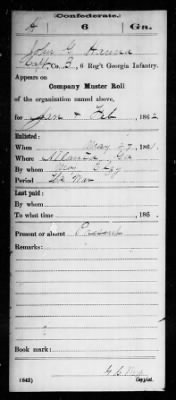 Confederate.
H 6 Ga.
John G. Hanna
Capt, Co. B, 6 Reg't Georgia Infantry.
Appears on
Company Muster Roll
of the organization named above,
for Jan & Feb, 1862
Enlisted:
When May 27, 1861.
Where Atlanta, Ga
By whom Maj
Period The War
Last paid:
By whom
To what time , 186 .
Present or absent Present
Remarks:
Book mark:
(642)
Copyist.